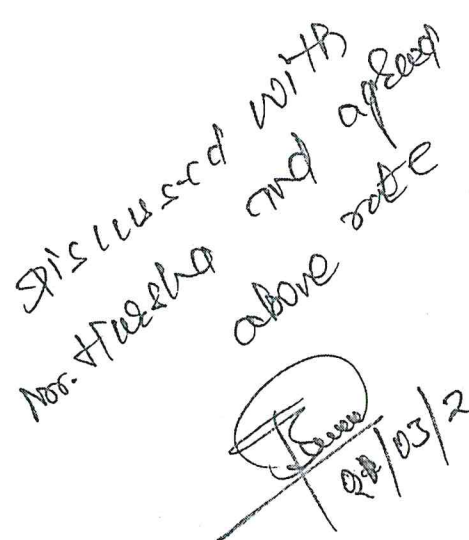 Discussed with
Mr. and agreed
above rate
/03/2